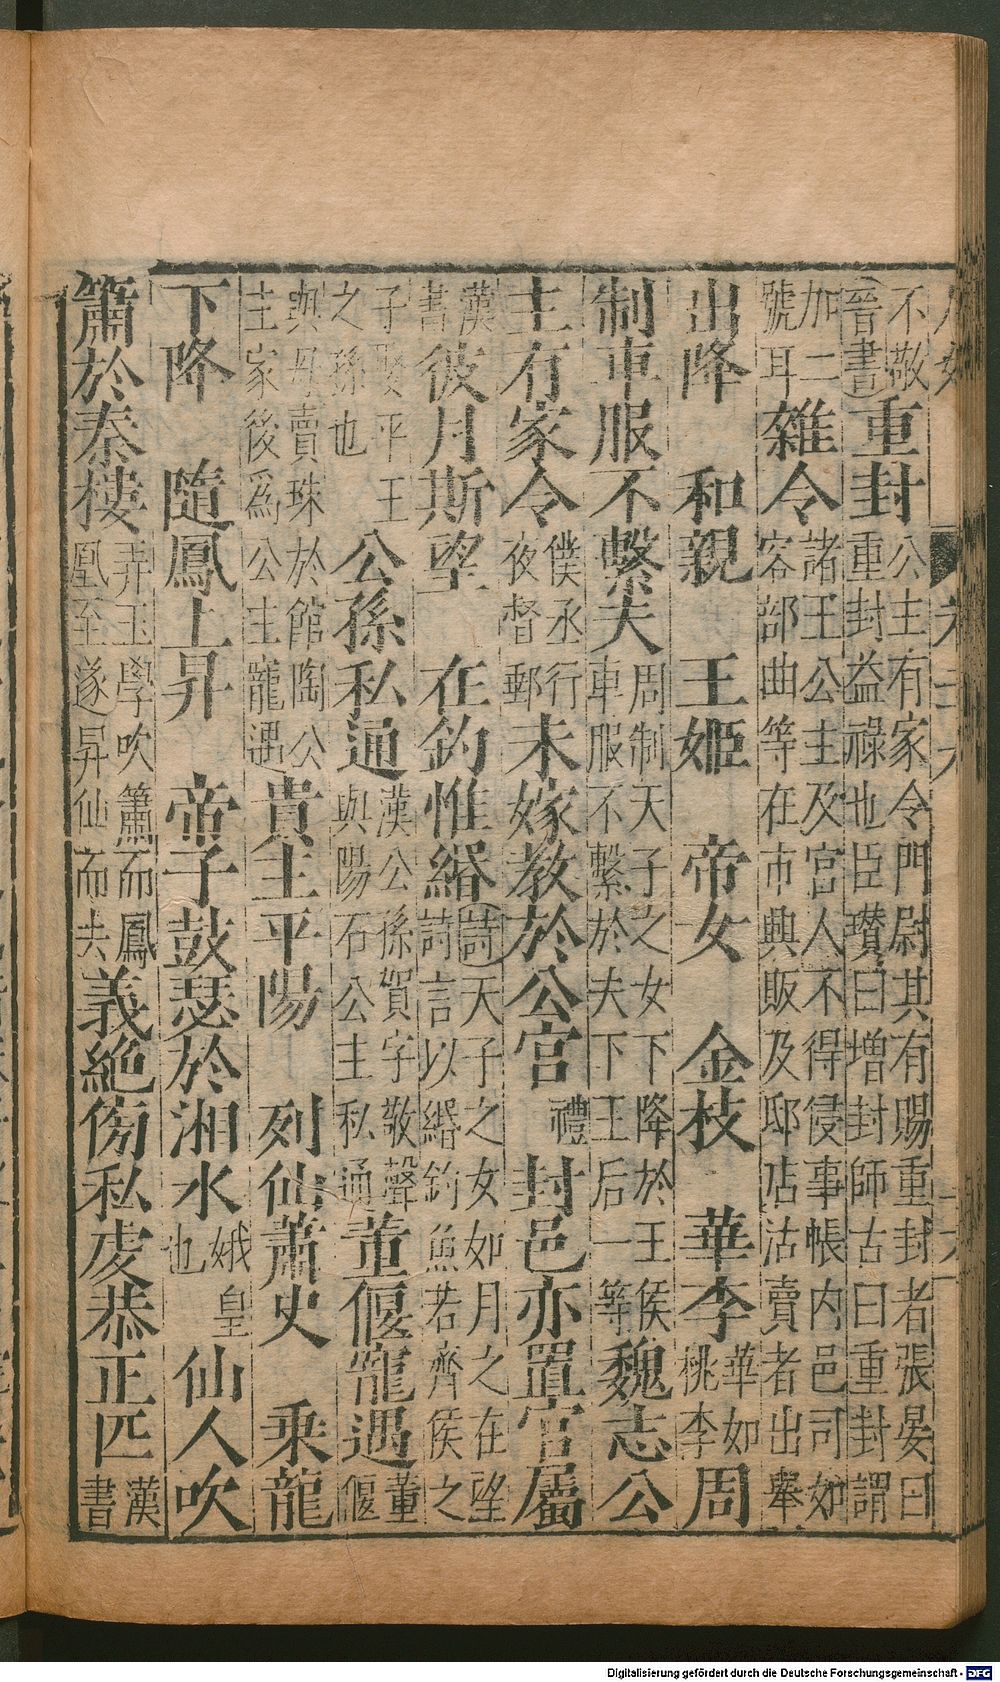 不敬晉書重封公主有家令門尉其有賜重封者張晏曰重封益祿也臣瓚曰增封師古曰重封謂
加二號耳雜令諸王公主及官人不得侵事帳內邑司如客部曲等在市興販及邸店沽賣者出舉
出降　和親　王姬　帝女　金枝　華李華如桃李周
制車服不繫夫周制天子之女下降於王侯車服不繫於夫下王后一等魏志公
主有家令僕丞行夜督郵未嫁教於公宮禮　封邑亦置官屬
漢書彼月斯望　在釣惟緡詩天子之女如月之在望詩言以緡釣魚若齊侯之
子娶平王之孫也　公孫私通漢公孫賀字敬聲與陽石公主私通董偃寵遇董偃
與母賣珠於館陶公主家後爲公主寵遇貴主平陽　列仙蕭史　乘龍
下降　隨鳳上昇　帝子鼓瑟於湘水娥皇也　仙人吹
簫於秦樓弄玉學吹簫而鳳凰至遂昇仙而去義絶傍私虔恭正匹漢書
Digitalisierung gefördert durch die Deutsche Forschungsgemeinschaft - DFG